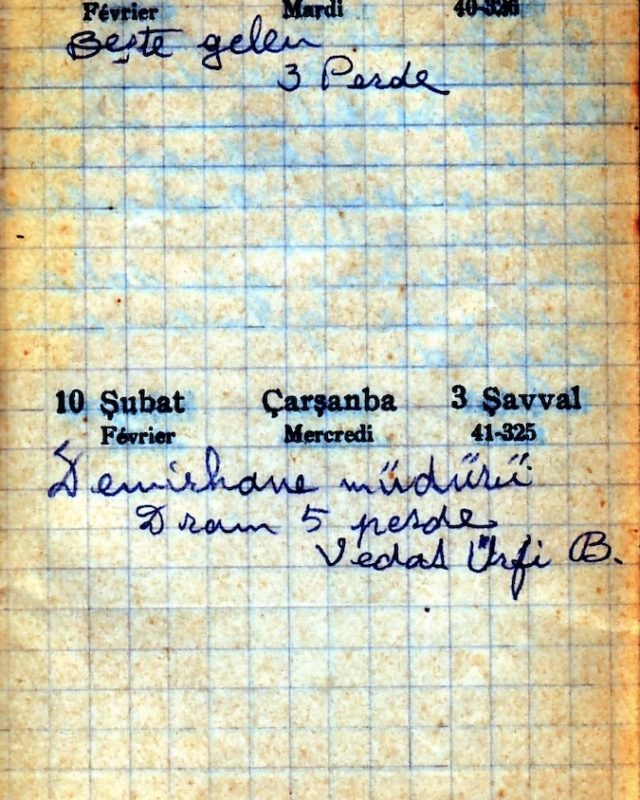 Février Mardi 40-326
Beşte gelen
3 Perde
10 Şubat Çarşanba 3 Şavval
Février Mercredi 41-325
Demirhane müdürü
Dram 5 perde
Vedat Ürfi B.